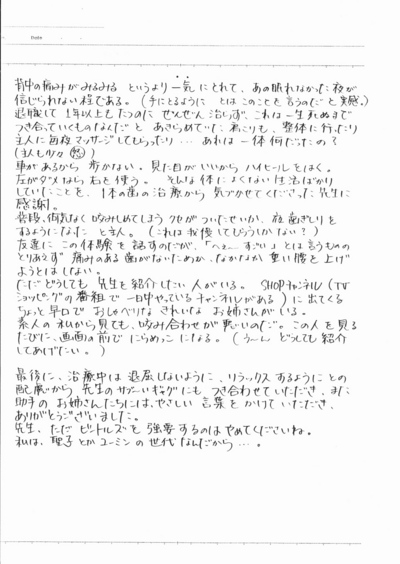 Date
背中の痛みがみるみる というより一気にとれて、あの眠れなかった夜が
信じられない程である。(手にとるように とはこのことを言うのだと実感。)
退職して 1年以上もたつのに ぜんぜん治らず、これは一生死ぬまで
つき合っていくものなんだと あきらめていた肩こりも、整体に行ったり
主人に毎夜マッサージしてもらったり… あれは一体何だったの?
(主人も少々 怒)
車があるから 歩かない。見た目がいいから ハイヒールをはく。
左がダメなら 右を使う。 そんな体によくない生活ばかり
していたことを、1本の歯の治療から 気づかせてくださった先生に
感謝。
普段、何気なく 咬みしめてしまうクセがついたせいか、夜歯ぎしりを
するようになったと主人。(これは我慢してもらうしかない?)
友達に この体験を話すのだが、「へぇー すごい」とは言うものの
とりあえず 痛みのある歯がないためか、なかなか重い腰を上げ
ようとはしない。
ただどうしても 先生を紹介したい人がいる。 SHOPチャンネル(TV
ショッピングの番組で一日中やっているチャンネルがある)に出てくる
ちょっと早口で おしゃべりな きれいな お姉さんがいる。
素人の私から見ても、咬み合わせが悪いのだ。この人を見る
たびに、画面の前で にらめっこになる。(うーん どうしても紹介
してあげたい。)
最後に、治療中は 退屈しないように、リラックスするようにとの
配慮から 先生のサブーいギャグにも つき合わせていただき、また
助手の お姉さんたちには、やさしい 言葉をかけていただき、
ありがとうございました。
先生、ただ ビートルズを 強要するのは やめてくださいね。
私は、聖子とかユーミンの世代なんだから…。